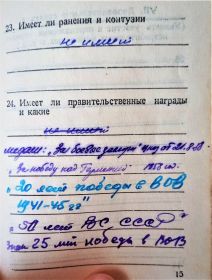 23. Имеет ли ранения и контузии
не имеет
24. Имеет ли правительственные награды
и какие
не имеет
медаль: „За боевые заслуги" от 21.8.
„За победу над Германией"
"20 лет победы в ВОВ
1941-45 гг"
"50 лет ВС СССР"
25 лет победы в ВОВ
15